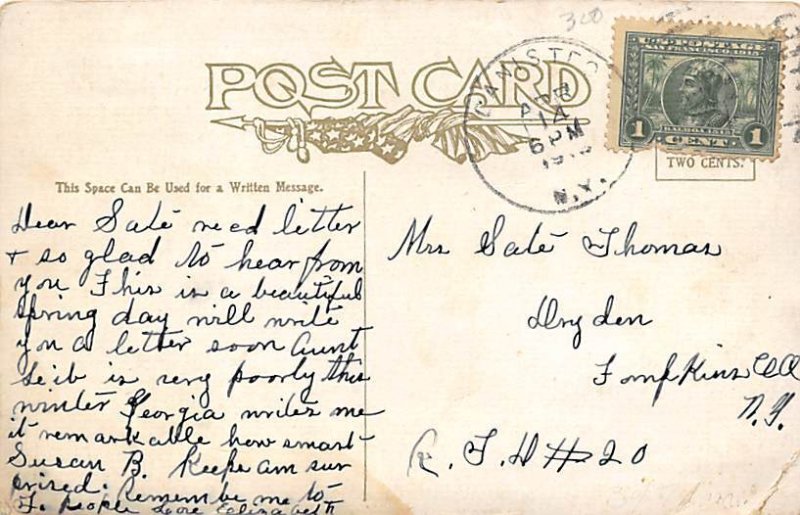 300
POST CARD
CANISTEO
APR
14
6 PM
N.Y.
U.S. POSTAGE
SAN FRANCISCO 1915
1 CENT 1
TWO CENTS.
This Space Can Be Used for a Written Message.
Dear Sate rec ed letter
& so glad to hear from
you This is a beautiful
spring day will write
you a letter soon Aunt
is very poorly this
winter Georgia writes me
it remarkable how smart
Susan B. Keeps am sur
prised. Remember me to
T. people Love Elizabeth
Mrs Sate Thomas
Dryden
Tompkins Co
N.Y.
R. F. D # 20